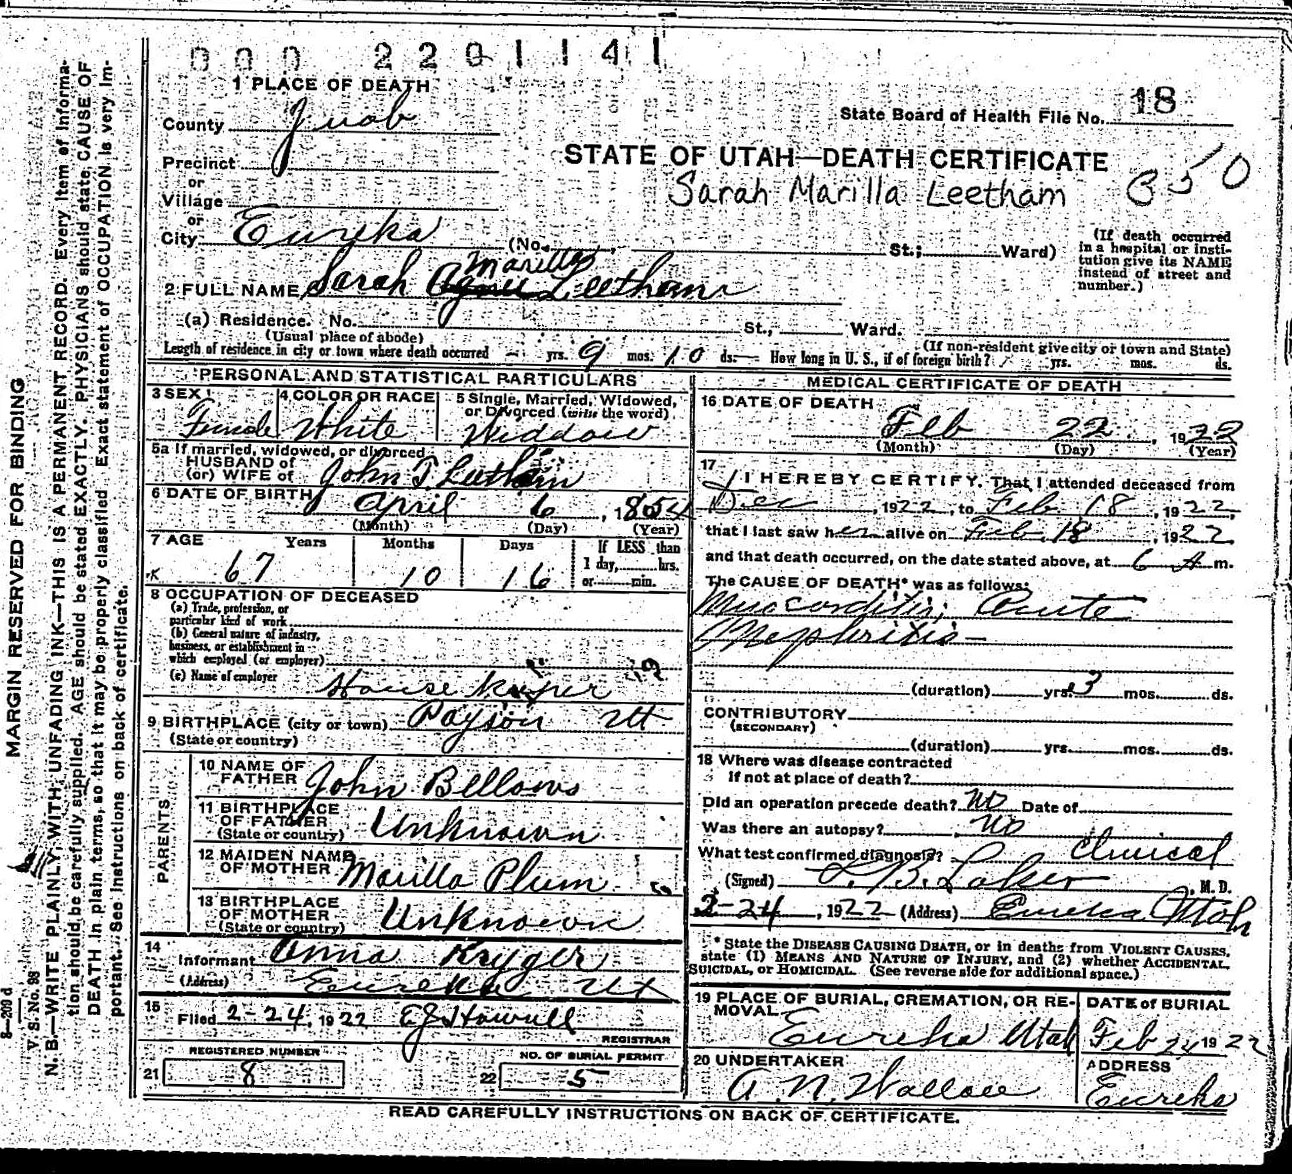 000 2201141
1 PLACE OF DEATH
County Juab
State Board of Health File No. 18
Precinct
or
Village
or
City Eureka (No. St.; Ward)
STATE OF UTAH—DEATH CERTIFICATE
Sarah Marilla Leetham
350
(If death occurred in a hospital or institution give its NAME instead of street and number.)
Marilla
2 FULL NAME Sarah Agnes Leetham
(a) Residence. No. St., Ward.
(Usual place of abode) (If non-resident give city or town and State)
Length of residence in city or town where death occurred — yrs. 9 mos. 10 ds. — How long in U. S., if of foreign birth? yrs. mos. ds.
PERSONAL AND STATISTICAL PARTICULARS
3 SEX Female
4 COLOR OR RACE White
5 Single, Married, Widowed, or Divorced (write the word) Widdow
5a If married, widowed, or divorced
HUSBAND of
(or) WIFE of John T. Leetham
6 DATE OF BIRTH April 6, 1854
(Month) (Day) (Year)
7 AGE Years Months Days If LESS than
1 day, hrs.
or min.
67 10 16
8 OCCUPATION OF DECEASED
(a) Trade, profession, or
particular kind of work
(b) General nature of industry,
business, or establishment in
which employed (or employer)
(c) Name of employer
House keeper
9 BIRTHPLACE (city or town) Payson Ut
(State or country)
PARENTS
10 NAME OF FATHER John Bellows
11 BIRTHPLACE OF FATHER
(State or country) Unknown
12 MAIDEN NAME OF MOTHER Marilla Plum
13 BIRTHPLACE OF MOTHER
(State or country) Unknown
14 Informant Anna Kryger
(Address) Eureka Ut
15 Filed 2-24, 1922 EJ Howell
REGISTRAR
21 REGISTERED NUMBER 8
22 NO. OF BURIAL PERMIT 5
MEDICAL CERTIFICATE OF DEATH
16 DATE OF DEATH
Feb 22, 1922
(Month) (Day) (Year)
17 I HEREBY CERTIFY, That I attended deceased from
Dec, 1922, to Feb 18, 1922,
that I last saw her alive on Feb 18, 1922
and that death occurred, on the date stated above, at 6 A m.
The CAUSE OF DEATH* was as follows:
Myocarditis; Acute
Nephritis —
(duration) yrs. 3 mos. ds.
CONTRIBUTORY
(SECONDARY)
(duration) yrs. mos. ds.
18 Where was disease contracted
If not at place of death?
Did an operation precede death? No Date of
Was there an autopsy? No
What test confirmed diagnosis? Clinical
(Signed) , M. D.
2-24, 1922 (Address) Eureka Utah
* State the DISEASE CAUSING DEATH, or in deaths from VIOLENT CAUSES,
state (1) MEANS AND NATURE OF INJURY, and (2) whether ACCIDENTAL,
SUICIDAL, or HOMICIDAL. (See reverse side for additional space.)
19 PLACE OF BURIAL, CREMATION, OR REMOVAL
Eureka Utah
DATE of BURIAL
Feb 24 1922
20 UNDERTAKER
A. N. Wallace
ADDRESS
Eureka
READ CAREFULLY INSTRUCTIONS ON BACK OF CERTIFICATE.
MARGIN RESERVED FOR BINDING
8—209 d
V. S. No. 98
N. B.—WRITE PLAINLY, WITH UNFADING INK—THIS IS A PERMANENT RECORD. Every item of information should be carefully supplied. AGE should be stated EXACTLY. PHYSICIANS should state CAUSE OF DEATH in plain terms, so that it may be properly classified. Exact statement of OCCUPATION is very important. See instructions on back of certificate.